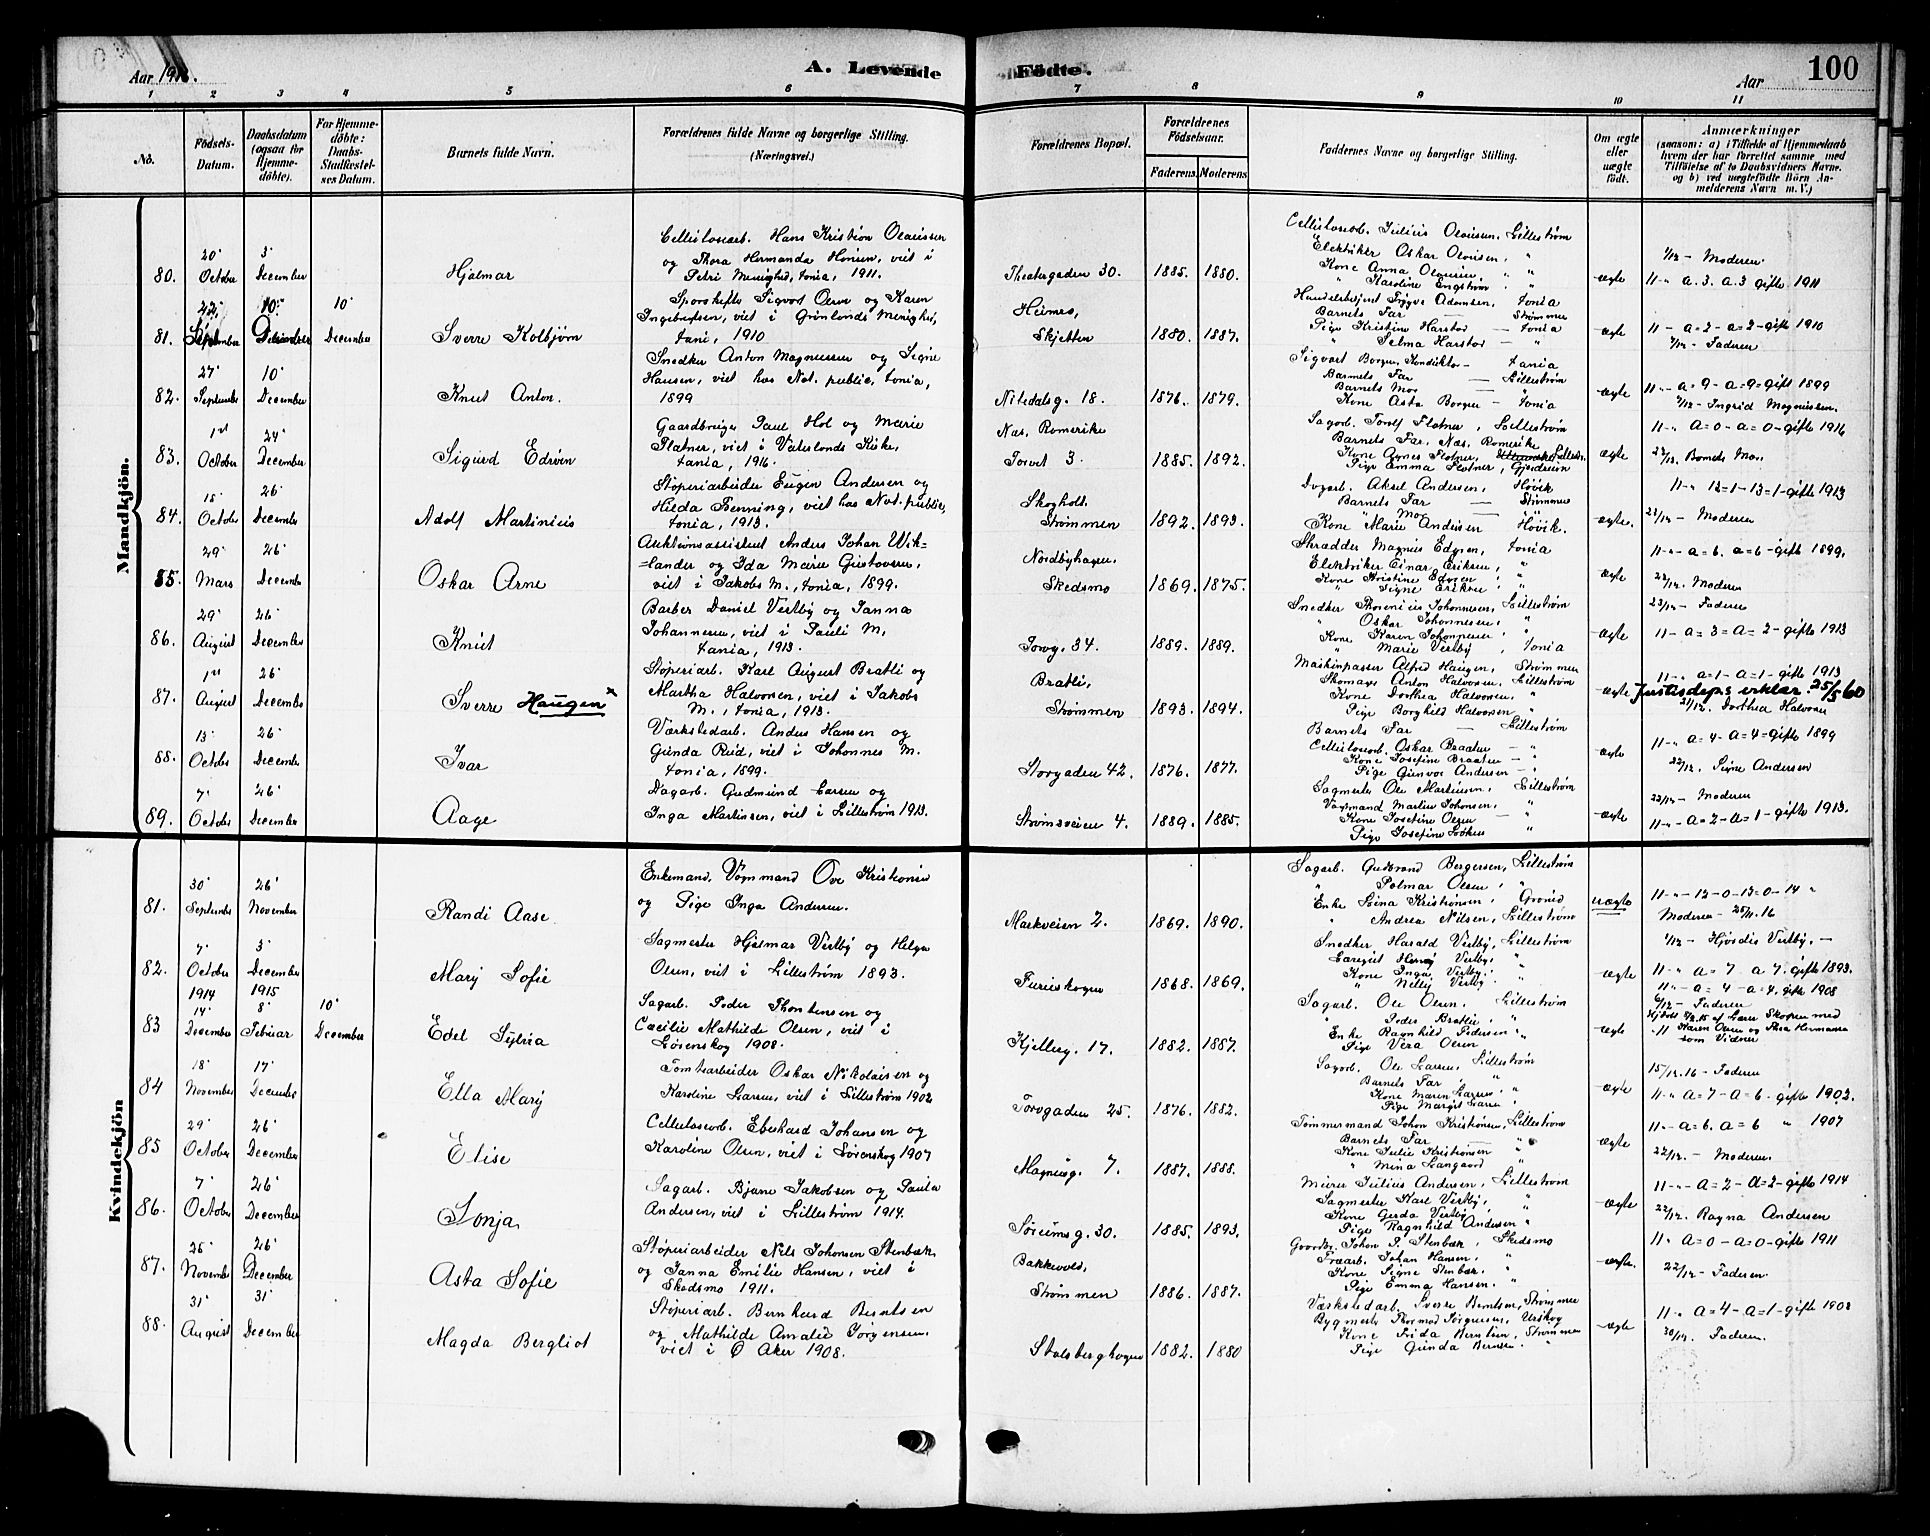 Aar 1916.
A. Levende
Födte.
Aar
100
1 2 3 4 5 6 7 8 9 10 11
No.
Födsels-Datum.
Daabsdatum (ogsaa for Hjemme-döbte).
For Hjemme-döbte: Daabs-Stadfæstel-ses Datum.
Barnets fulde Navn.
Forældrenes fulde Navne og borgerlige Stilling.
(Næringsvei.)
Forældrenes Bopæl.
Forældrenes Födselsaar.
Faderens. Moderens
Faddernes Navne og borgerlige Stilling.
Om ægte eller uægte födt.
Anmærkninger
(saasom: a) i Tilfælde af Hjemmedaab
hvem der har forrettet samme, med
Tilföielse af to Daabsvidners Navne,
og b) ved uægtefödte Börn An-
melderens Navn m. V.)
Mandkjön.
80. 20' October 3' December
Hjalmar
Cellulosearb. Hans Kristian Olaussen
og Thora Hermanda Hansen, viet i
Petri Menighed, tania, 1911.
Theatergaden 30. 1885. 1880.
Cellulosearb. Julius Olausen, Lillestrøm
Elektriker Oskar Olausen, "
Kone Anna Olausen, "
" Karoline Engstrøm, "
ægte
1/12 - Moderen.
11 - a. 3. a. 3 gifte 1911
81. 22' September 10' December 10' December
Sverre Kolbjørn
Sigvart Oerve og Karen
Ingebretsen, viet i Grønlands Menighed,
tania, 1910
Heimes,
Skjetten 1880. 1887.
Handelsbetjent Trygve Adamsen, tania
Barnets Far — Strømmen
Pige Kristine Harstad — tania
" Selma Harstad — "
ægte
11 - a = 2 - a = 2 - gift 1910
7/12 - Faderen
82. 27' September 10' December
Knut Anton.
Snedker Anton Magnussen og Signe
Hansen, viet hos Not. public, tania,
1899
Nitedalsg. 18. 1876. 1879.
Sigvart Borgen, Konduktør - tania
Barnets Far — Lillestrøm
Barnets Mor — "
Kone Asta Borgen — tania
ægte
11 - a = 9 - a = 9 = gift 1899
9/12 - Ingrid Magnussen.
83. 1st October 24' December
Sigurd Edvin
Gaardbruger Paul Hol og Marie
Flatner, viet i Vaterlands Kirke,
tania, 1916.
Næs, Romerike
Torvet 3. 1885. 1892.
Sagarb. Torolf Flatner, Lillestrøm
Barnets Far, Næs, Romerike
Kone Agnes Flatner, Lillestrøm.
Pige Emma Flatner,
ægte
11 - a = 0 - a = 0 - gifte 1916
22/12. Barnets Mor.
84. 18' October 26' December
Adolf Martinius
Støperiarbeider Eugen Andersen og
Hilda Benning, viet hos Not. public,
tania, 1913.
Skoghold.
Strømmen 1892. 1893.
Dagarb. Aksel Andersen, Høvik
Barnets Far — Strømmen
" Mor — "
Kone Marie Andersen Høvik.
ægte.
11 - 13 = 1 - 13 = 1 - gifte 1913
22/12 - Moderen
85. 29' Mars 26' December
Oskar Arne
Auktionsassistent Anders Johan Wik=
=lander og Ida Marie Gustavsen,
viet i Jakobs M., tania, 1899.
Nordbyhagen.
Skedsmo 1869. 1875.
Skrædder Magnus Edgren, tania
Elektriker Einar Eriksen, "
Kone Kristine Edgren "
" Signe Eriksen "
ægte
11 - a = 6. a = 6 - gifte 1899.
22/12. Moderen
86. 29' August 26' December
Knut
Barber Daniel Vestby og Janna
Johannesen, viet i Pauli M.
tania, 1913.
Torvg. 34. 1889. 1889.
Snedker Johannesen, Lillestrøm
" Oskar Johannesen, "
Kone Karen Johannesen, "
" Marie Vestby, tania
ægte
23/12 - Faderen
11 - a = 3 = a = 2 - gifte 1913
87. 1st August 26' December
Sverre Haugen x
Støperiarb. Karl August Bratli og
Martha Halvorsen, viet i Jakobs
M., tania, 1913.
Bratli,
Strømmen 1893. 1894.
Maskinpasser Alfred Haugen, Strømmen
Anton Halvorsen, Lillestrøm
Kone Dorthea Halvorsen, "
Pige Borghild Halvorsen "
ægte
11 - a = 1 - a = 1 - gifte 1913
Justisdeps erklær. 25/5 60
21/12. Dorthea Halvorsen
88. 13' October 26' December
Ivar
Værkstedarb. Anders Hansen og
Gunda Ruud, viet i Johannes M.
tania, 1899.
Storgaden 42. 1876. 1877.
Barnets Far — Lillestrøm
Cellulosearb. Oskar Braaten — "
Kone Josefine Braaten — "
Pige Gunvor Andersen — "
ægte
11 - a = 4 - a = 4 = gifte 1899
22/12. Signe Andersen
89. 7' October 26' December
Aage
Dagarb. Gudmund Larsen og
Inga Martinsen, viet i Lillestrøm 1913.
Strømsveien 4. 1889. 1885.
Sagmester Ole Martinsen, Lillestrøm
Vognmand Martin Johansen, "
Kone Josefine Olsen — "
Pige Josefine Løken "
ægte
22/12 - Moderen
11 - a = 2 - a = 1 - gifte 1913.
Kvindekjön
81. 30' September 26' November
Randi Aase
Enkemand, Vognmand Ove Kristiansen
og Pige Inga Andersen.
Markveien 2. 1869. 1890.
Sagarb. Gudbrand Bergersen, Lillestrøm
" Palmar Olsen, "
Enke Lina Kristiansen, Grorud
" Andrea Nilsen, Lillestrøm
uægte
11 - 12 - 0 - 13 = 0 - 14 "
Moderen - 25/11. 16
82. 7' October 3' December
Mary Sofie
Sagmester Hjalmar Vestby og Helga
Olsen, viet i Lillestrøm 1893.
Furuskogen 1868. 1869.
Snedker Harald Vestby, Lillestrøm
Henry Vestby, "
Kone Inga Vestby, "
" Nelly Vestby "
ægte
1/12 - Hjørdis Vestby. —
11 - a = 7 - a 7. gifte 1893.
83 1914 14' December 1915 8' Februar 10' December
Edel Sylvia
Sagarb. Peder Thorstensen og
Cæcilie Mathilde Olsen, viet i
Lørenskog 1908.
Kjellerg. 17. 1882. 1887.
Sagarb. Ole Olsen, Lillestrøm
" Peder Bratlie, "
Enke Ragnhild Pedersen "
Pige Vera Olsen
ægte
11 - a = 4 - a = 4. gifte 1908
6/12 - Faderen
Hjdøbt 8/2. 15 af Lærer Skogen med
Karen Olsen og Thea Hermansen
som Vidner
84 18' November 17' December
Ella Mary
Tomtearbeider Oskar Nikolaisen og
Karoline Larsen, viet i Lillestrøm 1902
Torvgaden 25. 1876. 1882.
Sagarb. Ole Larsen, Lillestrøm
Barnets Far, "
Kone Maren Larsen "
Pige Margit Larsen "
ægte
15/12. 16 - Faderen
11 - a = 7 - a = 6 - gifte 1902.
85 29' October 26' December
Elise
Cellulosearb. Eberhard Johansen og
Karoline Olsen, viet i Lørenskog 1907
Magnusg. 7. 1887. 1888.
Tømmermand Johan Kristiansen, Lillestrøm
Barnets Far — "
Kone Julie Kristiansen "
" Mina Langaard "
ægte
11 - a = 6. a = 6 " 1907
22/12. - Moderen.
86. 7' October 26' December
Sonja
Sagarb. Bjarne Jakobsen og Paula
Andersen, viet i Lillestrøm 1914.
Sørumsg. 30. 1885. 1893.
Murer Julius Andersen, Lillestrøm
Sagmester Karl Vestby, "
Kone Gerda Vestby, "
Pige Ragnhild Andersen "
ægte
11 - a = 2 - a = 2 - gifte 1914
22/12. Ragna Andersen
87. 25' November 26' December
Asta Sofie
Støperiarbeider Nils Johansen Stenbæk
og Janna Emilie Hansen, viet i
Skedsmo 1911.
Bakkevold,
Strømmen 1886. 1887.
Gaardbr. Johan P. Stenbæk, Skedsmo
Træarb. Johan Hansen, "
Kone Signe Stenbæk, "
Pige Emma Hansen. "
ægte.
11. a = 0 - a = 0 - gifte 1911
22/12 - Faderen.
88. 31' August 31' December
Magda Bergliot
Støperiarb. Bernhard Berntsen
og Mathilde Amalie Jørgensen.
viet i Ø Aker 1908.
Stalsberghagen 1882. 1880
Værkstedarb. Sverre Berntsen, Strømmen
Bygmester Thormod Jørgensen, Urskog
Kone Frida Berntsen, Strømmen
Pige Gunda Berntsen. "
ægte
11 - a = 4 - a = 1 - gifte 1908
30/12. Faderen.